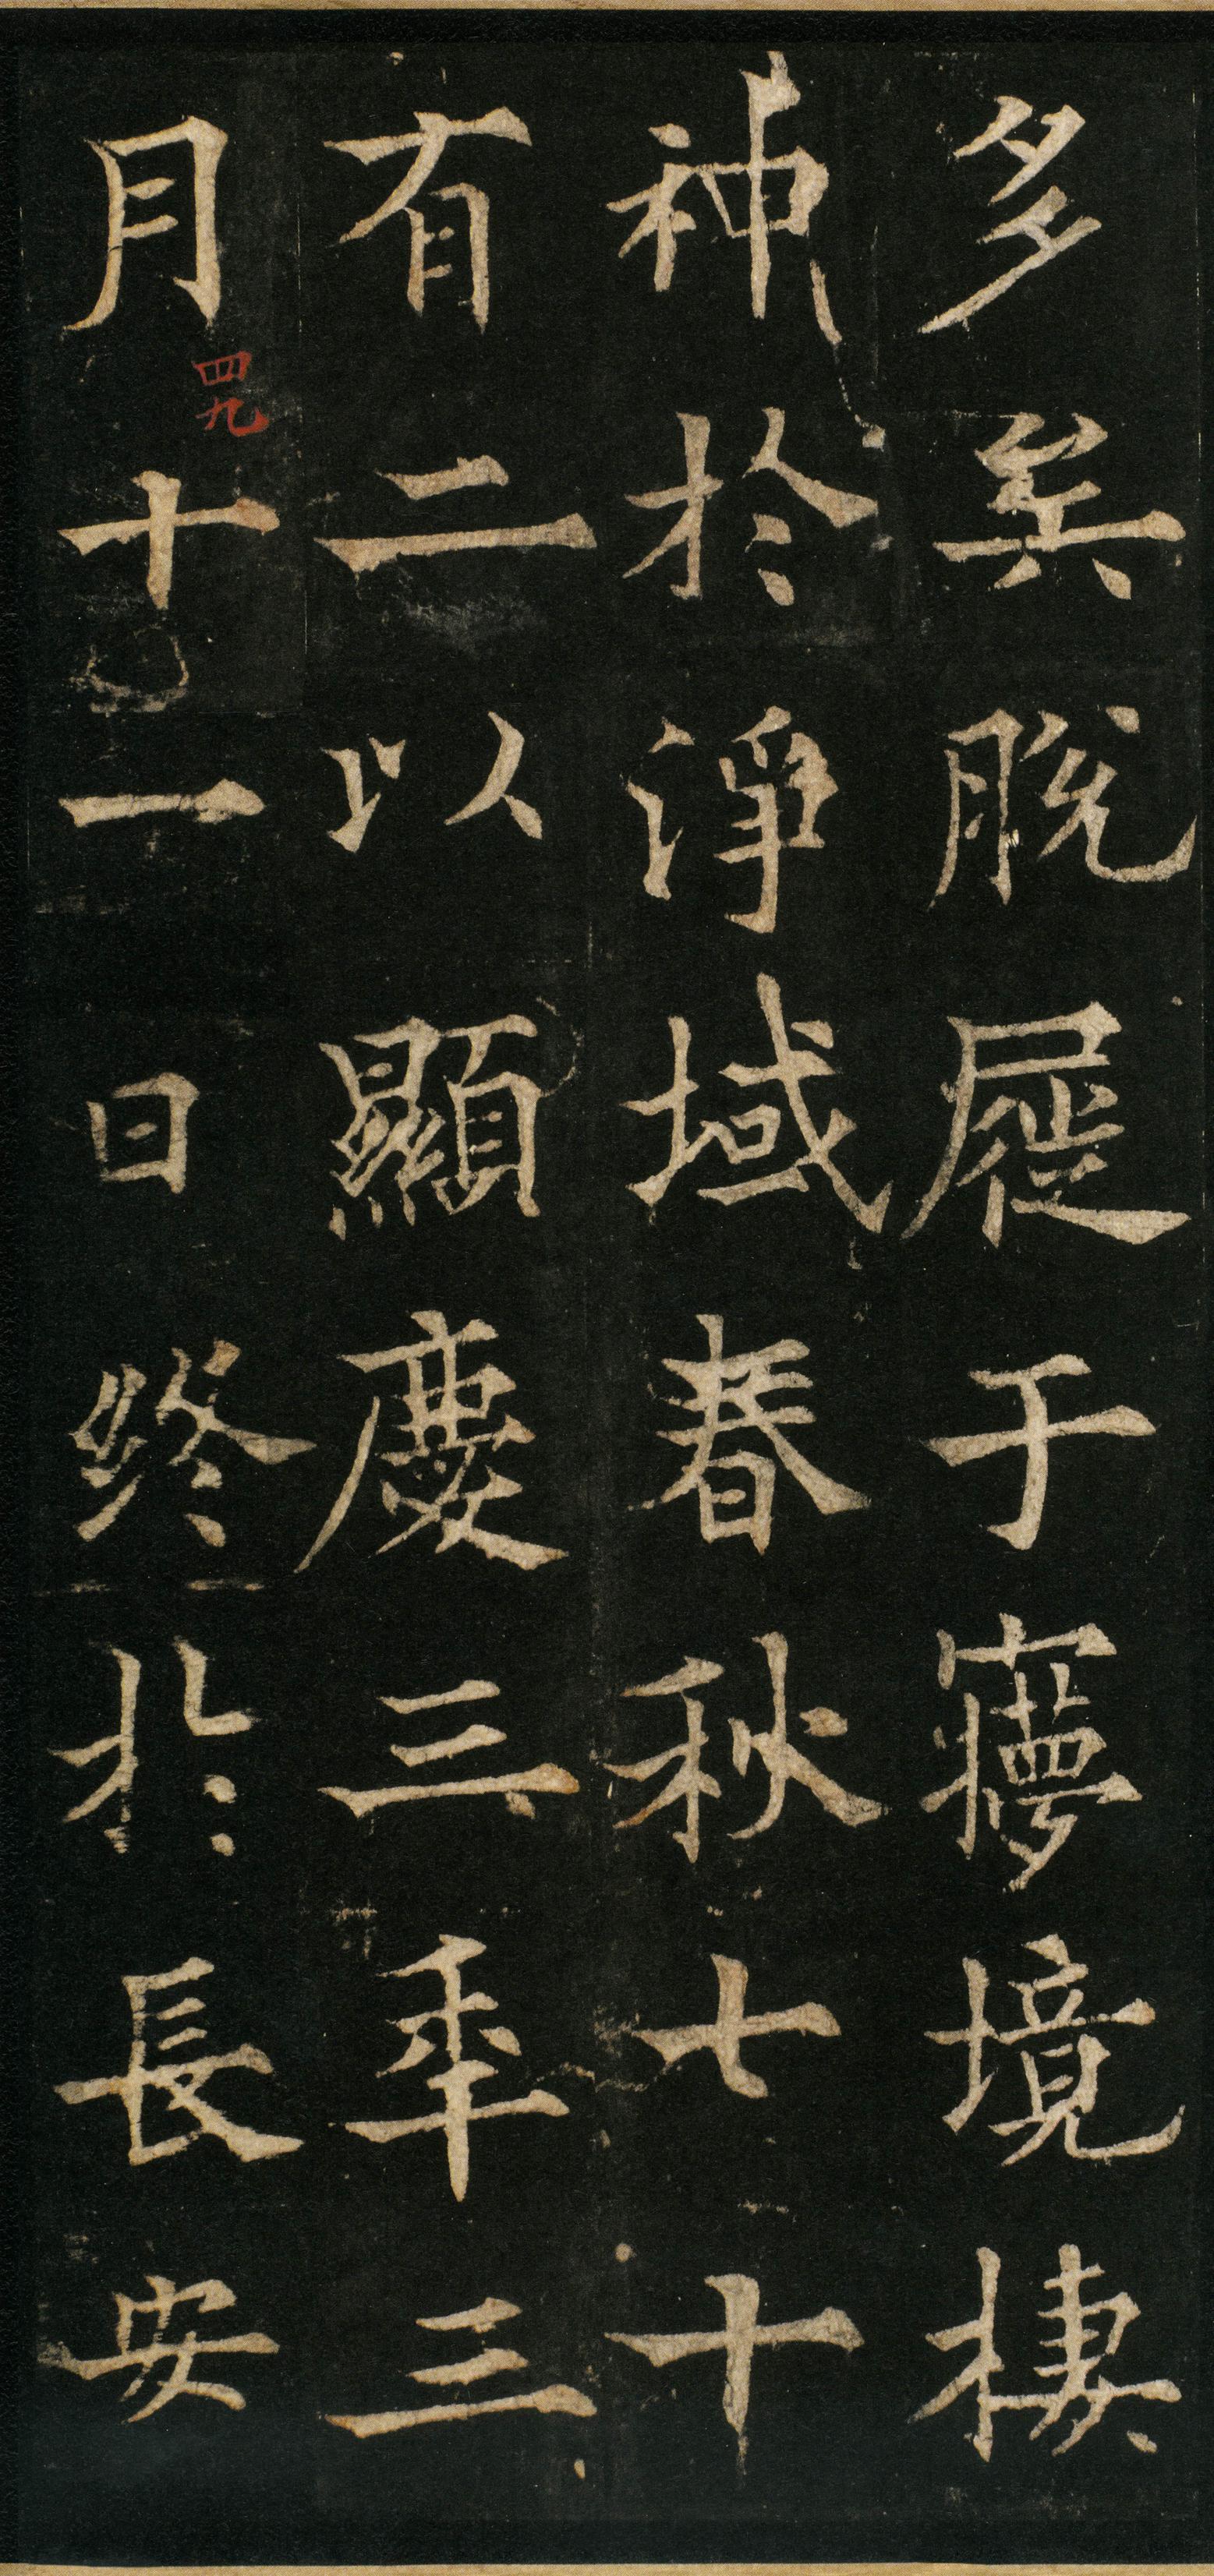 多矣脱屣于㝱境棲
神於淨域春秋七十
有二以顯慶三年三
月十一日終於長安
四九